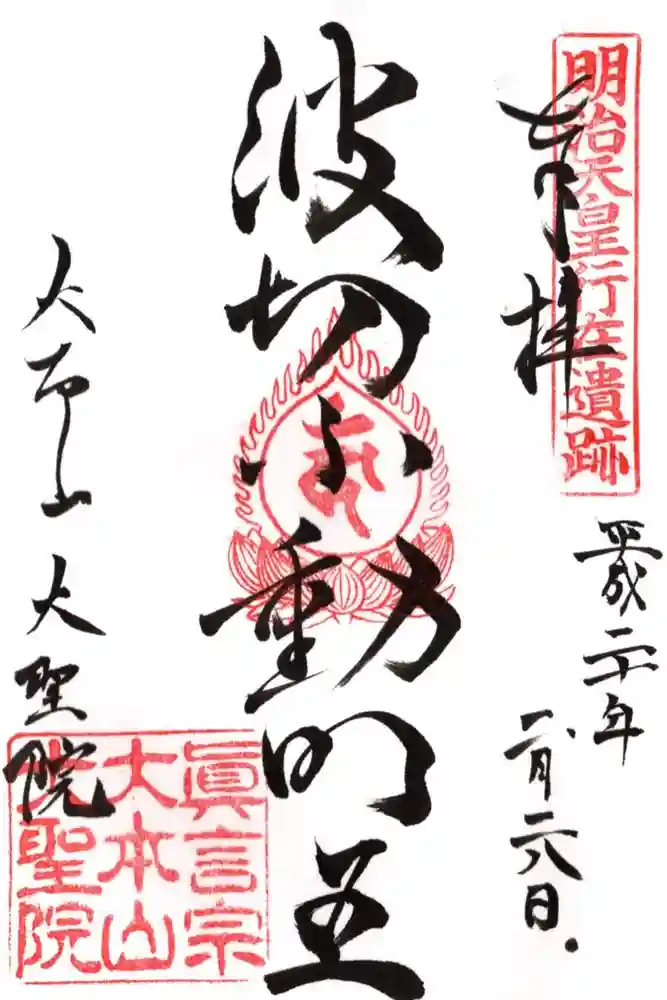 奉拝
明治天皇行在遺跡
平成二十年
一月二六日
波切不動明王
大本山
大聖院
眞言宗
大本山
大聖院